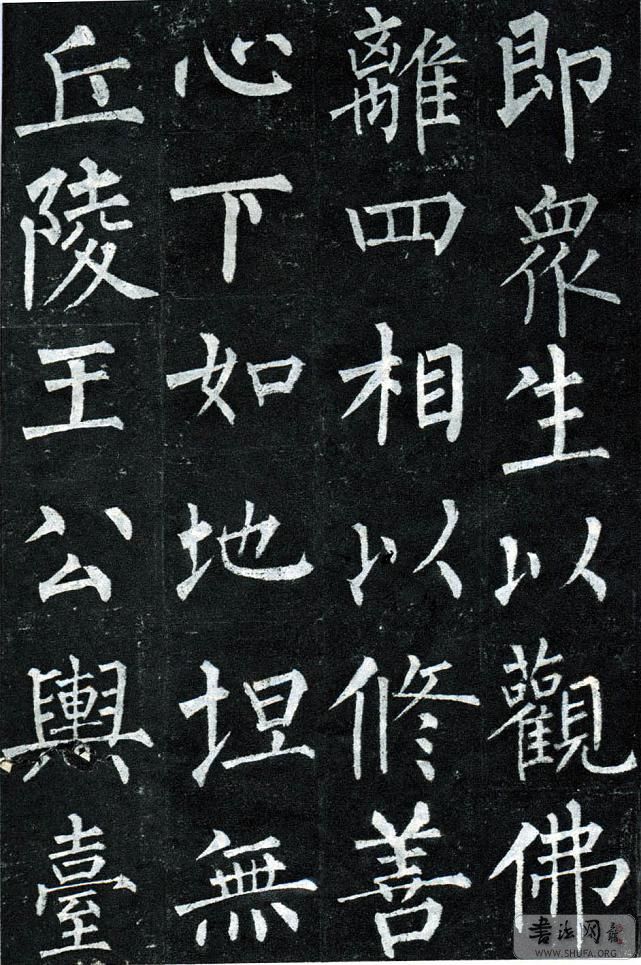 即眾生以觀佛
離四相以修善
心下如地坦無
丘陵王公輿臺
书法网
WWW.SHUFA.ORG